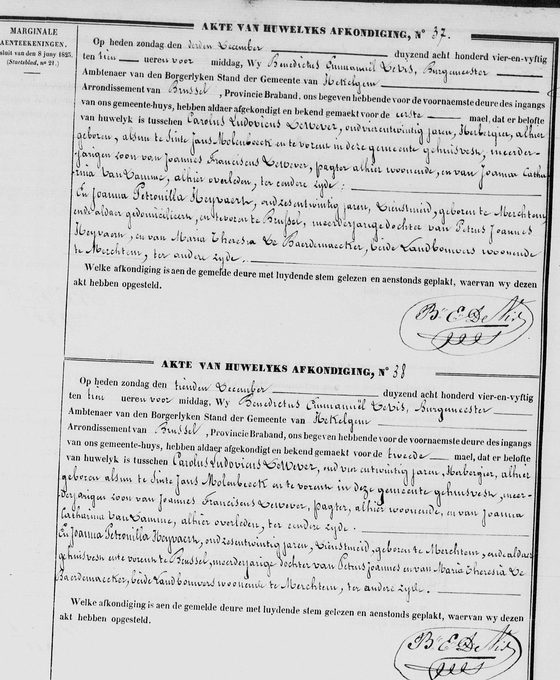 MARGINALE
AENTEEKENINGEN.
sluit van den 8 juny 1825.
(Staetsblad, nº 21)
AKTE VAN HUWELYKS AFKONDIGING, Nº 37.
Op heden zondag den derden December duyzend acht honderd vier-en-vyftig
ten tien ueren voor middag, Wy Benedictus Emmanuël De Vis, Burgemeester
Ambtenaer van den Borgerlyken Stand der Gemeente van Hekelgem
Arrondissement van Brussel, Provincie Braband, ons begeven hebbende voor de voornaemste deure des ingangs
van ons gemeente-huys, hebben aldaer afgekondigd en bekend gemaekt voor de eerste mael, dat er belofte
van huwelyk is tusschen Carolus Ludovicus De Wever, oud vierentwintig jaren, Herbergier, alhier
geboren, alsnu te Sinte Jans Molenbeeck en te vorent in deze gemeente gehuisvest, meerder-
jarigen zoon van Joannes Franciscus De Wever, pagter alhier woonende, en van Joanna Catha-
rina Van Damme, alhier overleden, ter eendere zyde:
En Joanna Petronilla Heyvaert, oud zesentwintig jaren, Dienstmeid, geboren te Merchtem,
ende aldaer gedomicilieerd, en te vorent te Brussel, meerderjarige dochter van Petrus Joannes
Heyvaert, en van Maria Theresia De Baerdemaecker, beide Landbouwers woonende
te Merchtem, ter andere zyde.
Welke afkondiging is aen de gemelde deure met luydende stem gelezen en aenstonds geplakt, waervan wy dezen
akt hebben opgesteld.
B E De Vis
AKTE VAN HUWELYKS AFKONDIGING, Nº 38
Op heden zondag den tienden December duyzend acht honderd vier-en-vyftig
ten tien ueren voor middag, Wy Benedictus Emmanuël De Vis, Burgemeester
Ambtenaer van den Borgerlyken Stand der Gemeente van Hekelgem
Arrondissement van Brussel, Provincie Braband, ons begeven hebbende voor de voornaemste deure des ingangs
van ons gemeente-huys, hebben aldaer afgekondigd en bekend gemaekt voor de tweede mael, dat er belofte
van huwelyk is tusschen Carolus Ludovicus De Wever, oud vier entwintig jaren, Herbergier, alhier
geboren alsnu te Sinte Jans Molenbeeck en te vorent in deze gemeente gehuisvest, meer-
derjarigen zoon van Joannes Franciscus De Wever, pagter, alhier woonende, en van Joanna
Catharina Van Damme, alhier overleden, ter eendere zyde.
En Joanna Petronilla Heyvaert, oud zesentwintig jaren, Dienstmeid, geboren te Merchtem, ende aldaer
gehuisvest en te vorent te Brussel, meerderjarige dochter van Petrus Joannes en van Maria Theresia De
Baerdemaecker, beide Landbouwers woonende te Merchtem, ter andere zyde.
Welke afkondiging is aen de gemelde deure met luydende stem gelezen en aenstonds geplakt, waervan wy dezen
akt hebben opgesteld.
B E De Vis